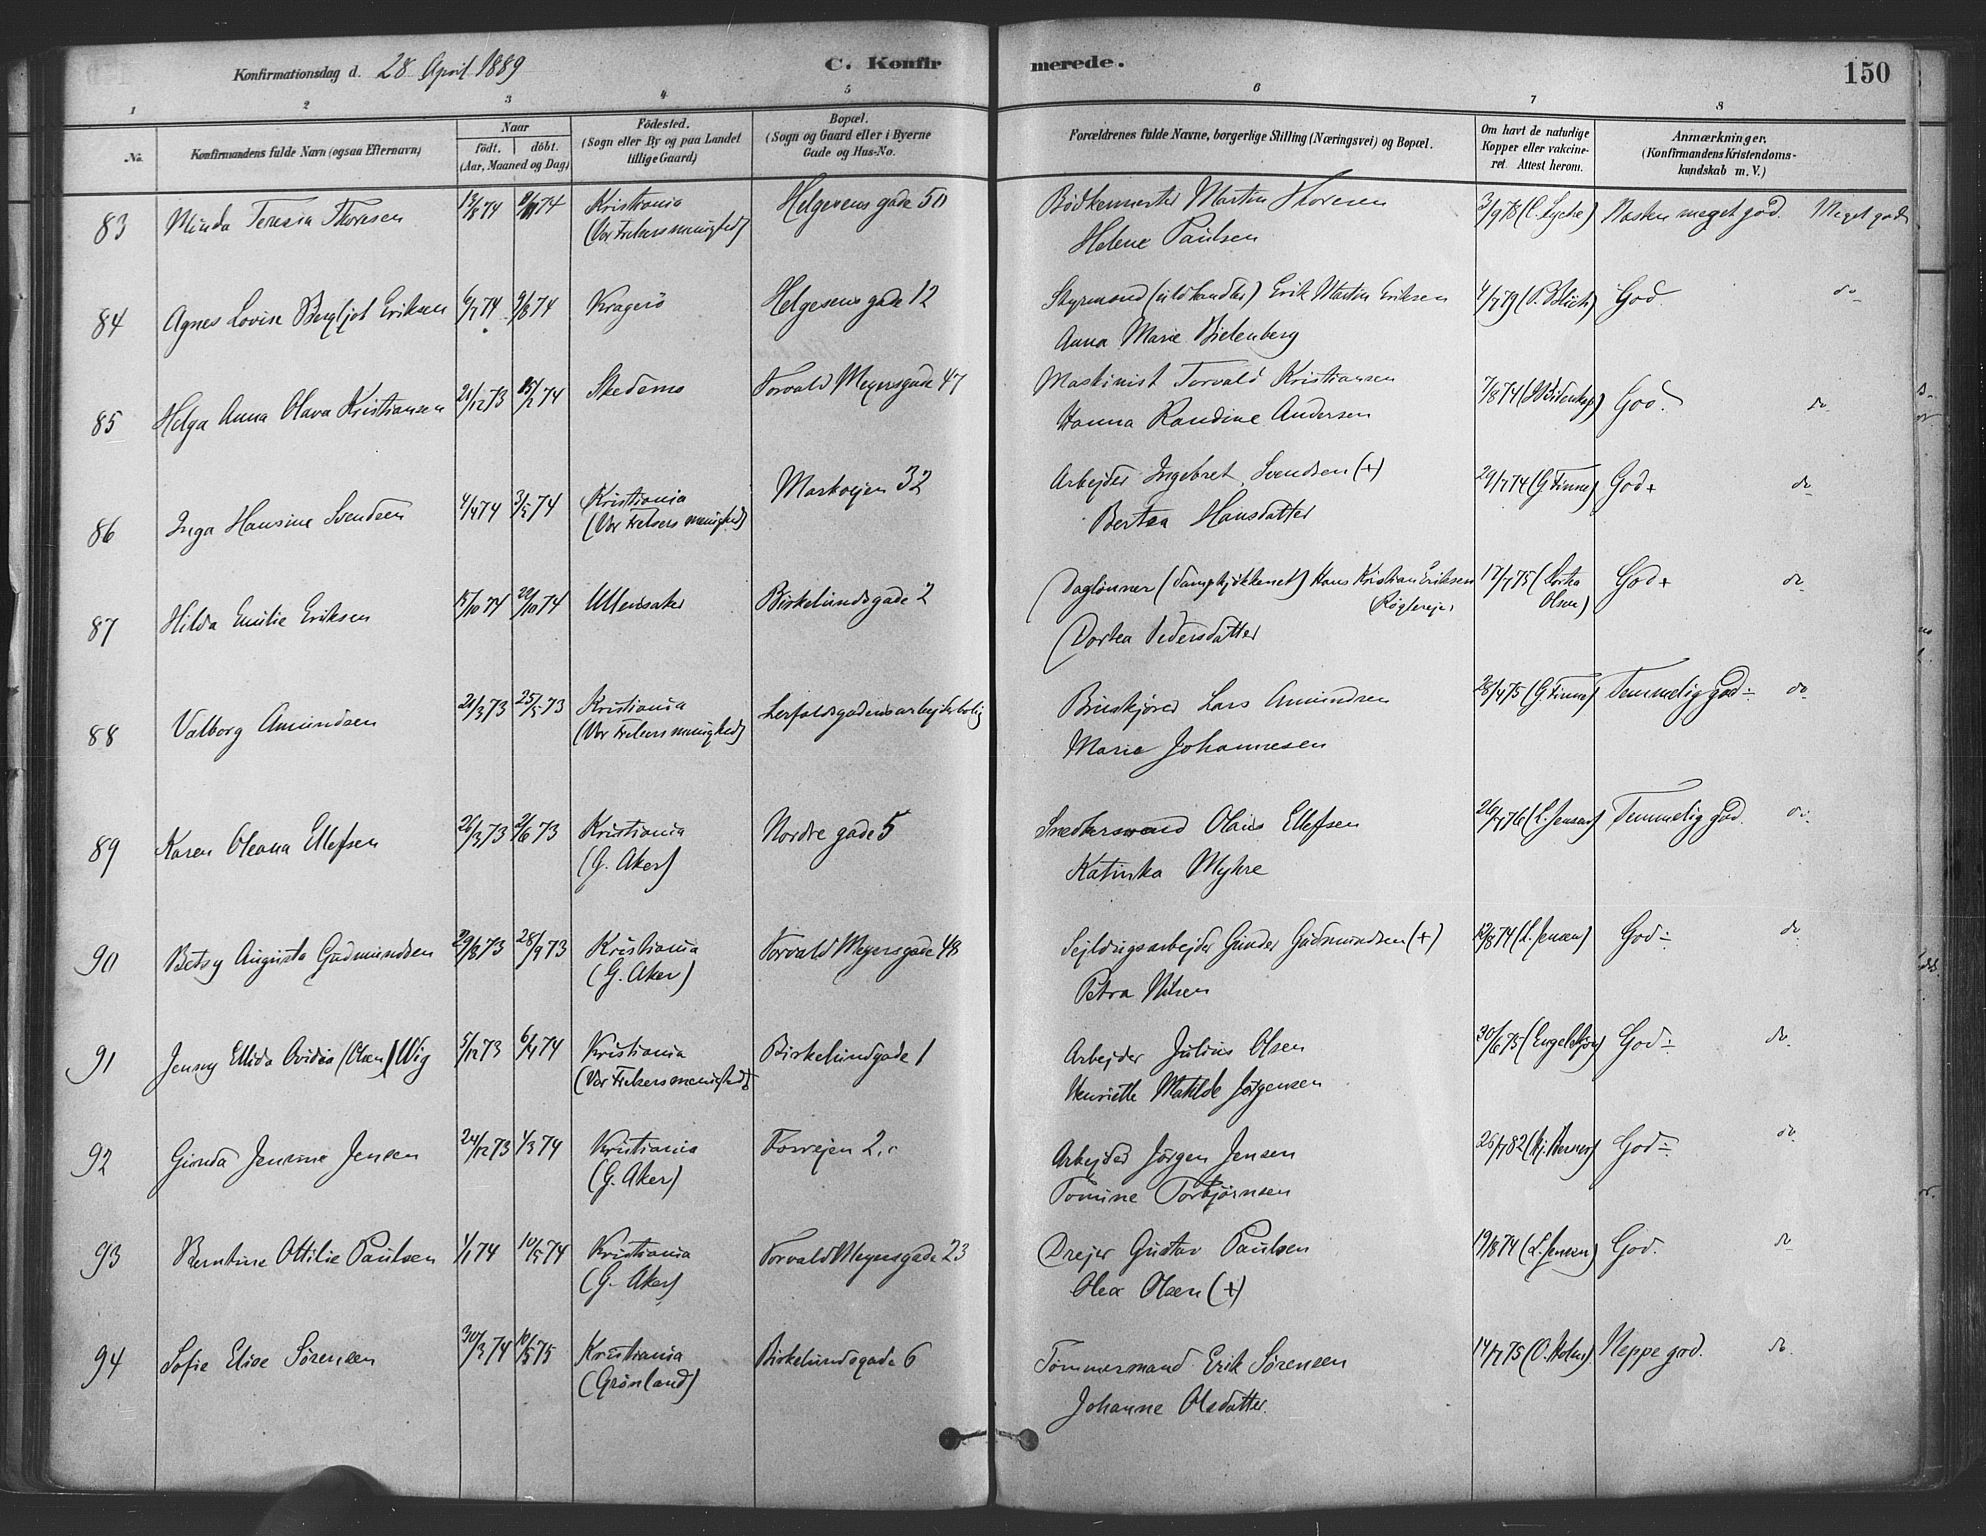 Konfirmationsdag d. 28 April 1889 C. Konfirmerede. 150
1 2 3 4 5 6 7 8
No. Konfirmandens fulde Navn (ogsaa Efternavn) Naar født. døbt. (Aar, Maaned og Dag) Födested. (Sogn eller By og paa Landet tillige Gaard) Bopæl. (Sogn og Gaard eller i Byerne Gade og Hus-No. Forældrenes fulde Navne, borgerlige Stilling (Næringsvei) og Bopæl. Om havt de naturlige Kopper eller vakcineret. Attest herom. Anmærkninger. (Konfirmandens Kristendomskundskab m. V.)
83 Minda Teresia Thoresen 19/8 74 74 Kristiania Helgesens gade 50 Martin Thoresen 3/9 78 Næsten meget god. Meget god
(Vor Frelsers menighed) Helene Paulsen
84 Agnes Lovise Bergljot Eriksen 6/7 74 9/8 74 Kragerø Helgesens gade 12 Styrmand Erik Martin Eriksen 4/7 79 God. do
Anna Marie Bielenberg
85 Helga Anna Olava Kristiansen 21/12 73 15/2 74 Skedsmo Torvald Meyersgade 47 Maskinist Torvald Kristiansen 7/8 74 God. do
Hanna Randine Andersen
86 Inga Hansine Svendsen 4/4 74 3/5 74 Kristiania Markvejen 32 Arbejder Ingebret Svendsen (+) 29/7 74 (G. Finne) God + do
(Vor Frelsers menighed) Bertea Hansdatter
87 Hilda Emilie Eriksen 15/10 74 74 Ullensaker Birkelundsgade 2 Daglønner (Dampkjøkkenet) Hans Kristian Eriksen 17/7 75 (Dortea Olsen) God + do
Dortea Pedersdatter
88 Valborg Amundsen 21/3 73 25/5 73 Kristiania Lerfaldsgadens arbejderbolig Lars Amundsen 28/4 75 (G. Finne) Temmelig god ÷ do
(Vor Frelsers menighed) Marie Johannesen
89 Karen Oleana Ellefsen 26/3 73 2/6 73 Kristiania Nordre gade 5 Snedkersvend Olaus Ellefsen 26/7 76 (L. Jensen) Temmelig god. do.
(G. Aker) Katinka Myhre
90 Betsy Augusta Gudmundsen 29/8 73 28/9 73 Kristiania Torvald Meyersgade 48 Sejldugsarbejder Gunder Gudmundsen (+) 12/8 74 (L. Jensen) God ÷ do
(G. Aker) Petra Nilsen
91 Jenny Ellida Ovidia (Olsen) Wig 5/12 73 6/4 74 Kristiania Birkelundgade 1 Arbejder Julius Olsen 30/6 75 God ÷ do
(Vor Frelsers menighed) Henriette Matilde Jørgensen
92 Gunda Jensine Jensen 24/12 73 1/3 74 Kristiania Fossvejen 2 Arbejder Jørgen Jensen 26/7 82 God ÷ do
(G. Aker) Tomine Torbjørnsen
93 Berntine Ottilie Paulsen 1/1 74 10/5 74 Kristiania Torvald Meyersgade 23 Drejer Gustav Paulsen 19/8 74 (L. Jensen) God. do
(G. Aker) Olea Olsen (+)
94 Sofie Elise Sørensen 30/3 74 10/5 75 Kristiania Birkelundsgade 6 Tømmermand Erik Sørensen 14/7 75 (O. Holm) Neppe god. do
(Grønland) Johanne Olsdatter